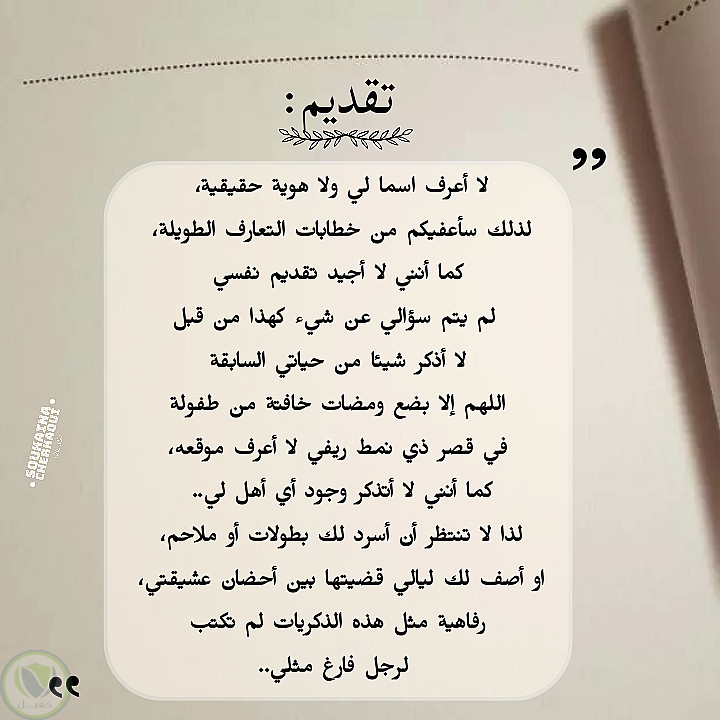 تقديم:
لا أعرف اسما لي ولا هوية حقيقية،
لذلك سأعفيكم من خطابات التعارف الطويلة،
كما أنني لا أجيد تقديم نفسي
لم يتم سؤالي عن شيء كهذا من قبل
لا أذكر شيئا من حياتي السابقة
اللهم إلا بضع ومضات خافتة من طفولة
في قصر ذي نمط ريفي لا أعرف موقعه،
كما أنني لا أتذكر وجود أي أهل لي..
لذا لا تنتظر أن أسرد لك بطولات أو ملاحم،
او أصف لك ليالي قضيتها بين أحضان عشيقتي،
رفاهية مثل هذه الذكريات لم تكتب
لرجل فارغ مثلي..
SOUKAINA
CHERKAOUI